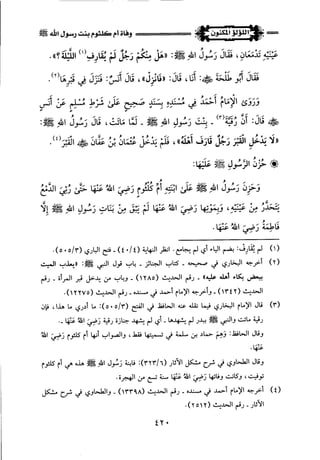 اللؤلؤ المكنون
وفاة أم كلثوم بنت رسول الله ﷺ
عَيْنَيْهِ تَدْمَعَانِ، فَقَالَ رَسُولُ اللهِ ﷺ: «هَلْ مِنْكُمْ رَجُلٌ لَمْ يُقَارِفِ(١) اللَّيْلَةَ؟».
فَقَالَ أَبُو طَلْحَةَ ﷺ: أَنَا، قَالَ: «فَانْزِلْ»، قَالَ أَنَسٌ: فَنَزَلَ فِي قَبْرِهَا(٢).
وَرَوَى الْإِمَامُ أَحْمَدُ فِي مُسْنَدِهِ بِسَنَدٍ صَحِيحٍ عَلَى شَرْطِ مُسْلِمٍ عَنْ أَنَسٍ
ﷺ قَالَ: أَنَّ رُقَيَّةَ(٣) - بِنْتَ رَسُولِ اللهِ ﷺ - لَمَّا مَاتَتْ، قَالَ رَسُولُ اللهِ ﷺ:
«لَا يَدْخُلِ الْقَبْرَ رَجُلٌ قَارَفَ أَهْلَهُ»، فَلَمْ يَدْخُلْ عُثْمَانُ بْنُ عَفَّانَ ﷺ الْقَبْرَ(٤).
حُزْنُ الرَّسُولِ ﷺ عَلَيْهَا:
وَحَزِنَ رَسُولُ اللهِ ﷺ عَلَى ابْنَتِهِ أُمِّ كُلْثُومٍ رَضِيَ اللهُ عَنْهَا حَتَّى رُئِيَ الدَّمْعُ
يَتَحَدَّرُ مِنْ عَيْنَيْهِ، وَبِمَوْتِهَا رَضِيَ اللهُ عَنْهَا لَمْ يَبْقَ مِنْ بَنَاتِ رَسُولِ اللهِ ﷺ إِلَّا
فَاطِمَةُ رَضِيَ اللهُ عَنْهَا.
(١) لم يُقَارِف: بضم الياء أي لم يجامع. انظر النهاية (٤٠/٤) - فتح الباري (٥٠٥/٣).
(٢) أخرجه البخاري في صحيحه - كتاب الجنائز - باب قول النبي ﷺ: «يعذب الميت
ببعض بكاء أهله عليه» - رقم الحديث (١٢٨٥) - وباب من يدخل قبر المرأة - رقم
الحديث (١٣٤٢) - وأخرجه الإمام أحمد في مسنده - رقم الحديث (١٢٢٧٥).
(٣) قال الإمام البخاري فيما نقله عنه الحافظ في الفتح (٥٠٥/٣): ما أدري ما هذا، فإن
رقية ماتت والنبي ﷺ ببدر لم يشهدها - أي لم يشهد جنازة رقية رَضِيَ اللهُ عَنْهَا -.
وقال الحافظ: وَهِمَ حماد بن سلمة في تسميتها فقط، والصواب أنها أم كلثوم رَضِيَ اللهُ
عَنْهَا.
وقال الطحاوي في شرح مشكل الآثار (٣٢٣/٦): فابنة رَسُولِ اللهِ ﷺ هذه هي أم كلثوم
توفيت، وكانت وفاتها رَضِيَ اللهُ عَنْهَا سنة تسع من الهجرة.
(٤) أخرجه الإمام أحمد في مسنده - رقم الحديث (١٣٣٩٨) - والطحاوي في شرح مشكل
الآثار - رقم الحديث (٢٥١٢).
٤٢٠